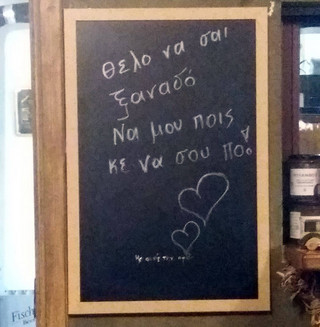 Θελο να σαι
ξαναδό
Να μου ποις
κε να σου πο!
Fisch